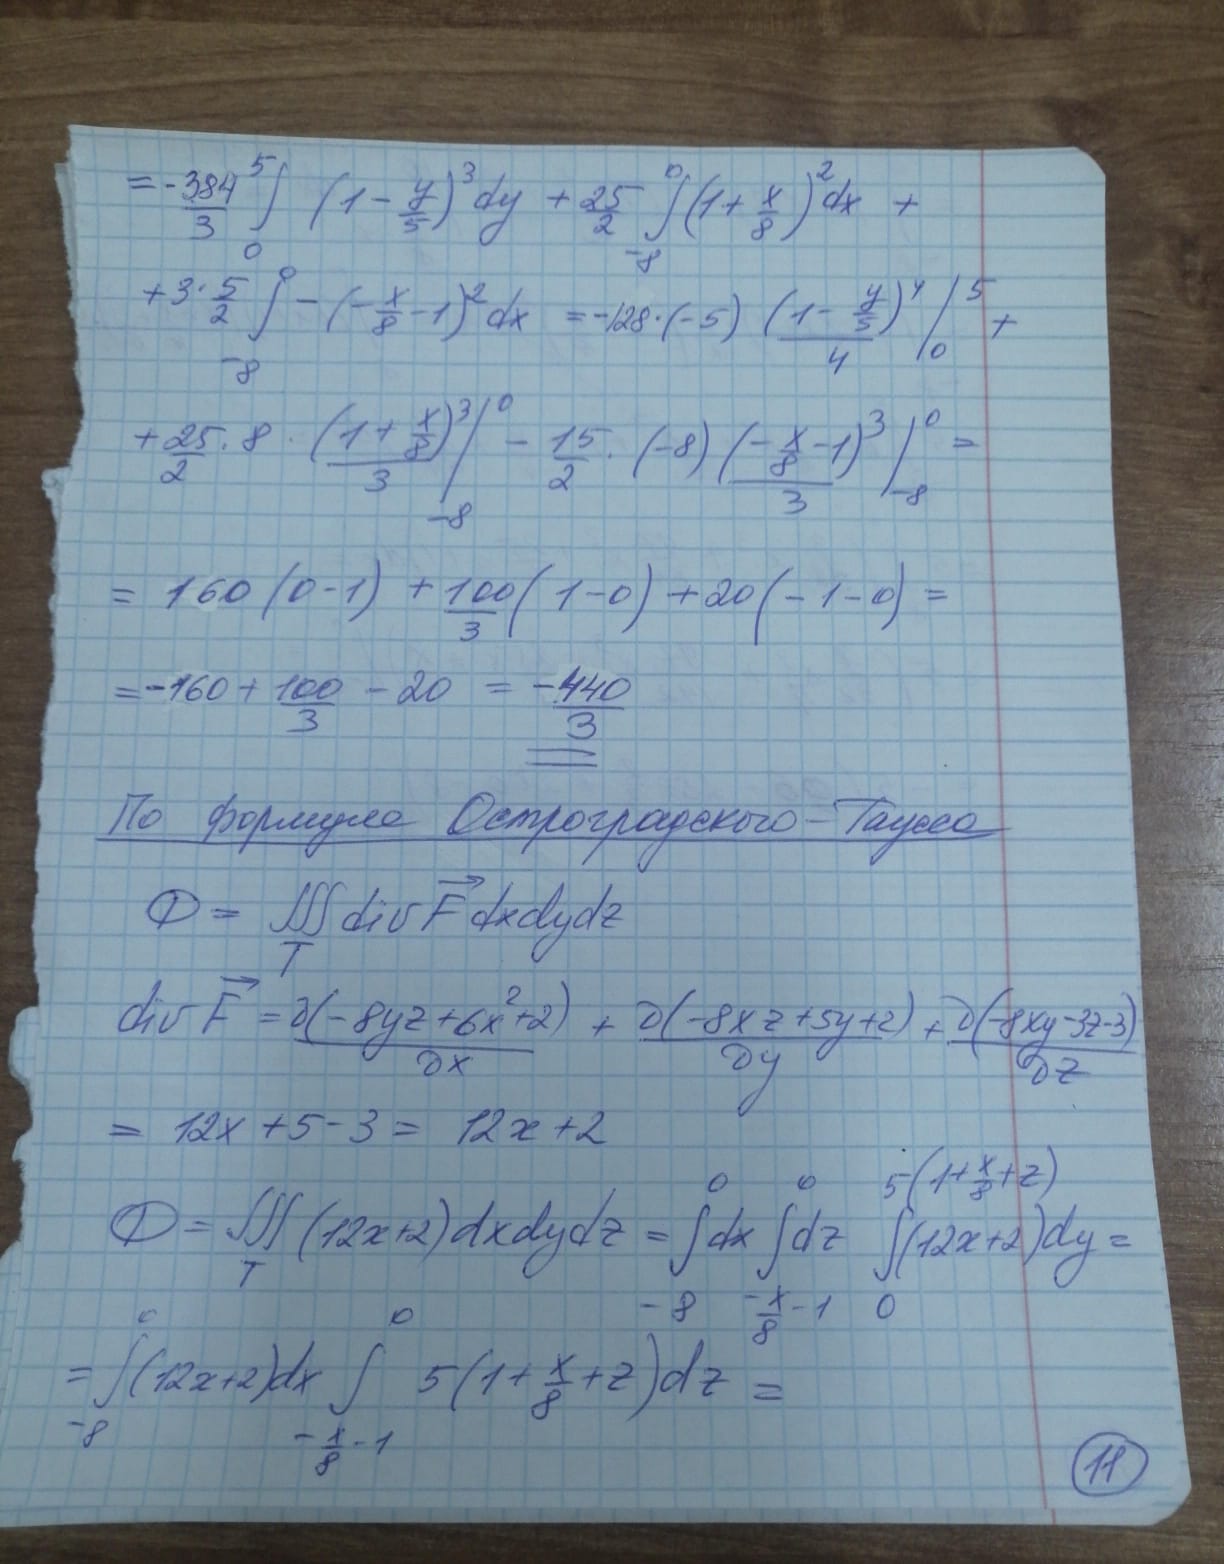 = -384/3 ∫₀⁵ (1 - y/5)³ dy + 25/2 ∫₋₈⁰ (1 + x/8)² dx +
+ 3 · 5/2 ∫₋₈⁰ -(-x/8 - 1)² dx = -128 · (-5) (1 - y/5)⁴/4 |₀⁵ +
+ 25/2 · 8 · (1 + x/8)³/3 |₋₈⁰ - 15/2 · (-8) (-x/8 - 1)³/3 |₋₈⁰ =
= 160 (0 - 1) + 100/3 (1 - 0) + 20 (-1 - 0) =
= -160 + 100/3 - 20 = -440/3
По формуле Остроградского-Гаусса
Ф = ∭_T div F⃗ dxdydz
div F⃗ = ∂(-8yz + 6x² + 2)/∂x + ∂(-8xz + 5y + 2)/∂y + ∂(-8xy - 3z - 3)/∂z
= 12x + 5 - 3 = 12x + 2
Ф = ∭_T (12x + 2) dxdydz = ∫₋₈⁰ dx ∫_{-x/8 - 1}^{0} dz ∫_{0}^{5(1 + x/8 + z)} (12x + 2) dy =
= ∫₋₈⁰ (12x + 2) dx ∫_{-x/8 - 1}^{0} 5 (1 + x/8 + z) dz =
11